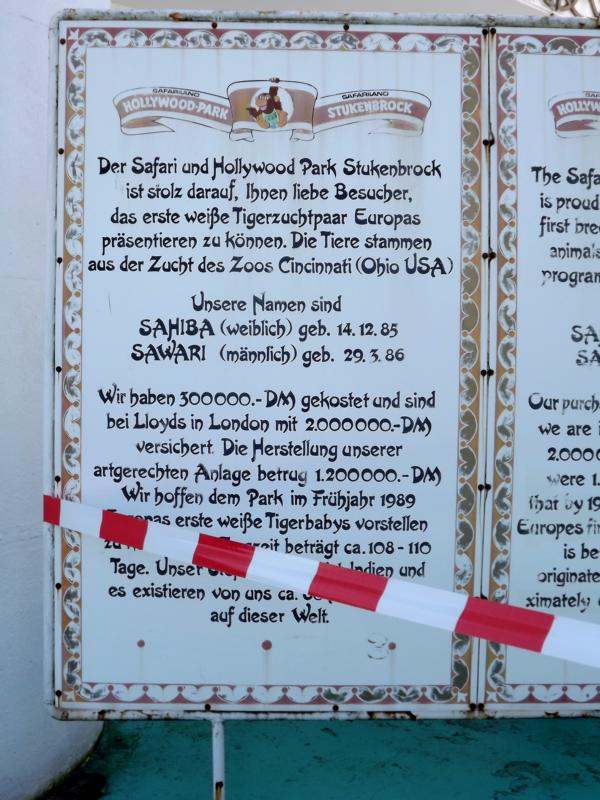 SAFARILAND SAFARILAND
HOLLYWOOD-PARK STUKENBROCK
Der Safari und Hollywood Park Stukenbrock
ist stolz darauf, Ihnen liebe Besucher,
das erste weiße Tigerzuchtpaar Europas
präsentieren zu können. Die Tiere stammen
aus der Zucht des Zoos Cincinnati (Ohio USA)
Unsere Namen sind
SAHIBA (weiblich) geb. 14.12.85
SAWARI (männlich) geb. 29.3.86
Wir haben 300000.-DM gekostet und sind
bei Lloyds in London mit 2.000000.-DM
versichert. Die Herstellung unserer
artgerechten Anlage betrug 1.200000.-DM
Wir hoffen dem Park im Frühjahr 1989
Europas erste weiße Tigerbabys vorstellen
zu beträgt ca. 108-110
Tage. Unser Indien und
es existieren von uns ca.
auf dieser Welt.
HOLLYW
The Safa
is proud
first bree
animals
program
SA
SA
Our purch
we are i
2.000
were 1.
that by 19
Europes fi
is be
originate
ximately